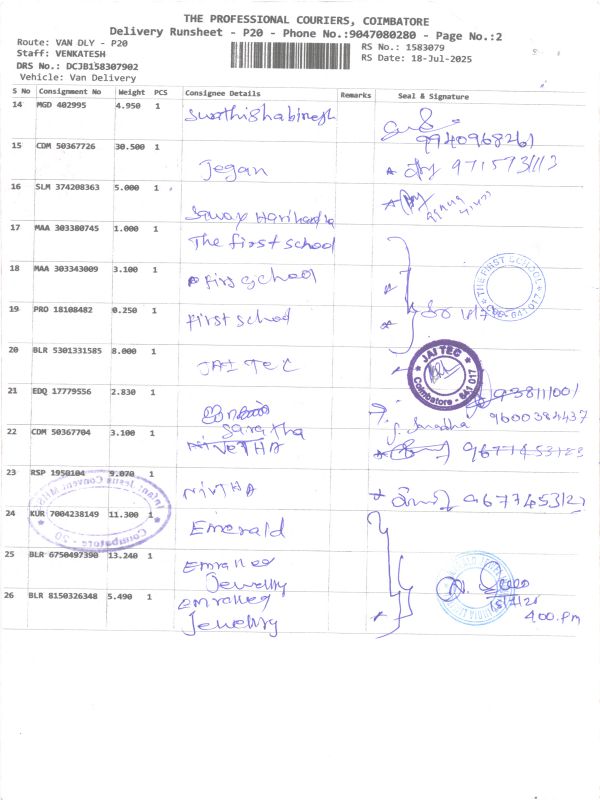 THE PROFESSIONAL COURIERS, COIMBATORE
Delivery Runsheet - P20 - Phone No.:9047080280 - Page No.:2
Route: VAN DLY - P20
Staff: VENKATESH
DRS No.: DCJB158307902
Vehicle: Van Delivery
RS No.: 1583079
RS Date: 18-Jul-2025
S No Consignment No Weight PCS Consignee Details Remarks Seal & Signature
14 MGD 402995 4.950 1
9940968261
15 CDM 50367726 30.500 1 Jegan
16 SLM 374208363 5.000 1
17 MAA 303380745 1.000 1 The first school
18 MAA 303343009 3.100 1 firs school
THE FIRST SCHOOL
CBE-641 017
19 PRO 18108482 0.250 1 first school
20 BLR 5301331585 8.000 1 JAI TEC
JAI TEC
Coimbatore - 641 017
21 EDQ 17779556 2.830 1
9600384437
22 CDM 50367704 3.100 1 Saratha
NIVETHA
23 RSP 1950104 9.070 1 NIVTHA
24 KUR 7004238149 11.300 1 Emerald
Infant Jesus Convent
Coimbatore - 30
25 BLR 6750497390 13.240 1
Jewellry
26 BLR 8150326348 5.490 1
Jewellry
4.00.pm